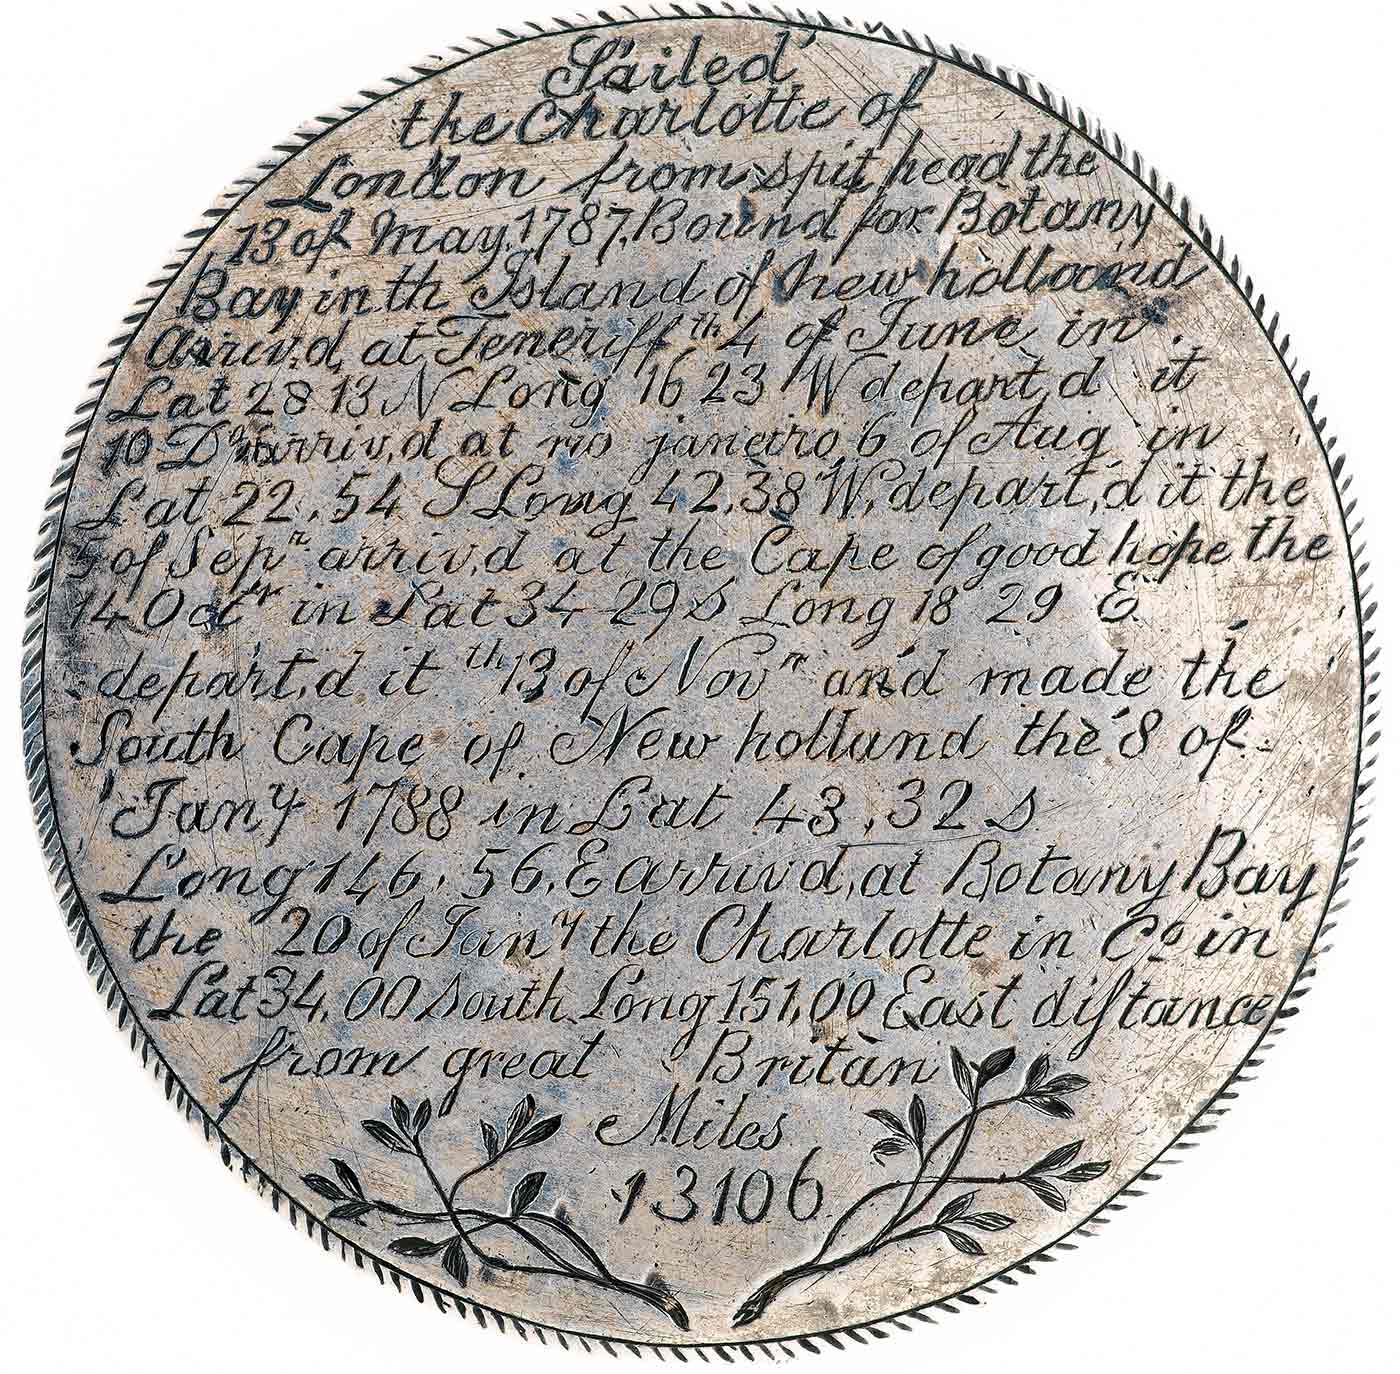 Sailed
the Charlotte of
London from spit head the
13 of May, 1787, Bound for Botany
Bay in th Island of new holland
Arriv,d, at Teneriff th 4 of June in
Lat 28 13 N Long 16 23 W depart,d it
10 Do arriv,d at rio janeiro 6 of Aug in
Lat 22,54 S Long 42,38 W, depart,d it the
5 of Sepr arriv,d at the Cape of good hope the
14 Octr in Lat 34 29 S Long 18 29 E
depart,d it th 13 of Novr and made the
South Cape of New holland the 8 of
Jany 1788 in Lat 43,32 S
Long 146,56, E arrivd, at Botany Bay
the 20 of Jany the Charlotte in Co in
Lat 34,00 South Long 151,00 East diſtance
from great Britan
Miles
13106